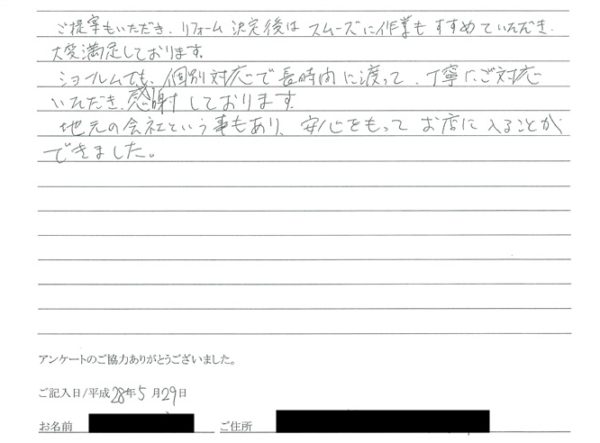 ご提案もいただき、リフォーム決定後はスムーズに作業もすすめていただき、
大変満足しております。
ショールームでも、個別対応で長時間に渡って、丁寧にご対応
いただき、感謝しております。
地元の会社という事もあり、安心をもってお店に入ることが
できました。
アンケートのご協力ありがとうございました。
ご記入日/平成28年5月29日
お名前 ご住所